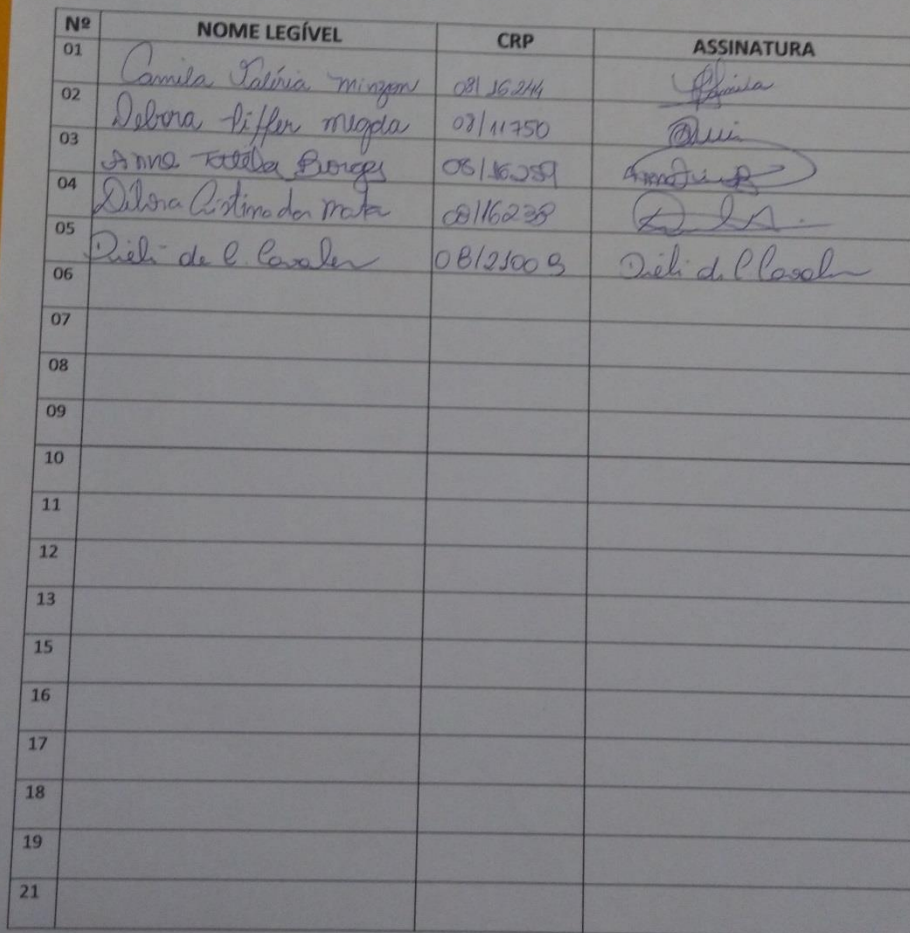 Nº NOME LEGÍVEL CRP ASSINATURA
01 Camila Valéria 08/16244 Camila
02 Debora 08/11750
03 Anna Borges 08/16289
04 Débora Cristina da Mata 08/16238
05 Diéli de C. Cavaler 08/21009 Diéli de C Cavaler
06
07
08
09
10
11
12
13
15
16
17
18
19
21